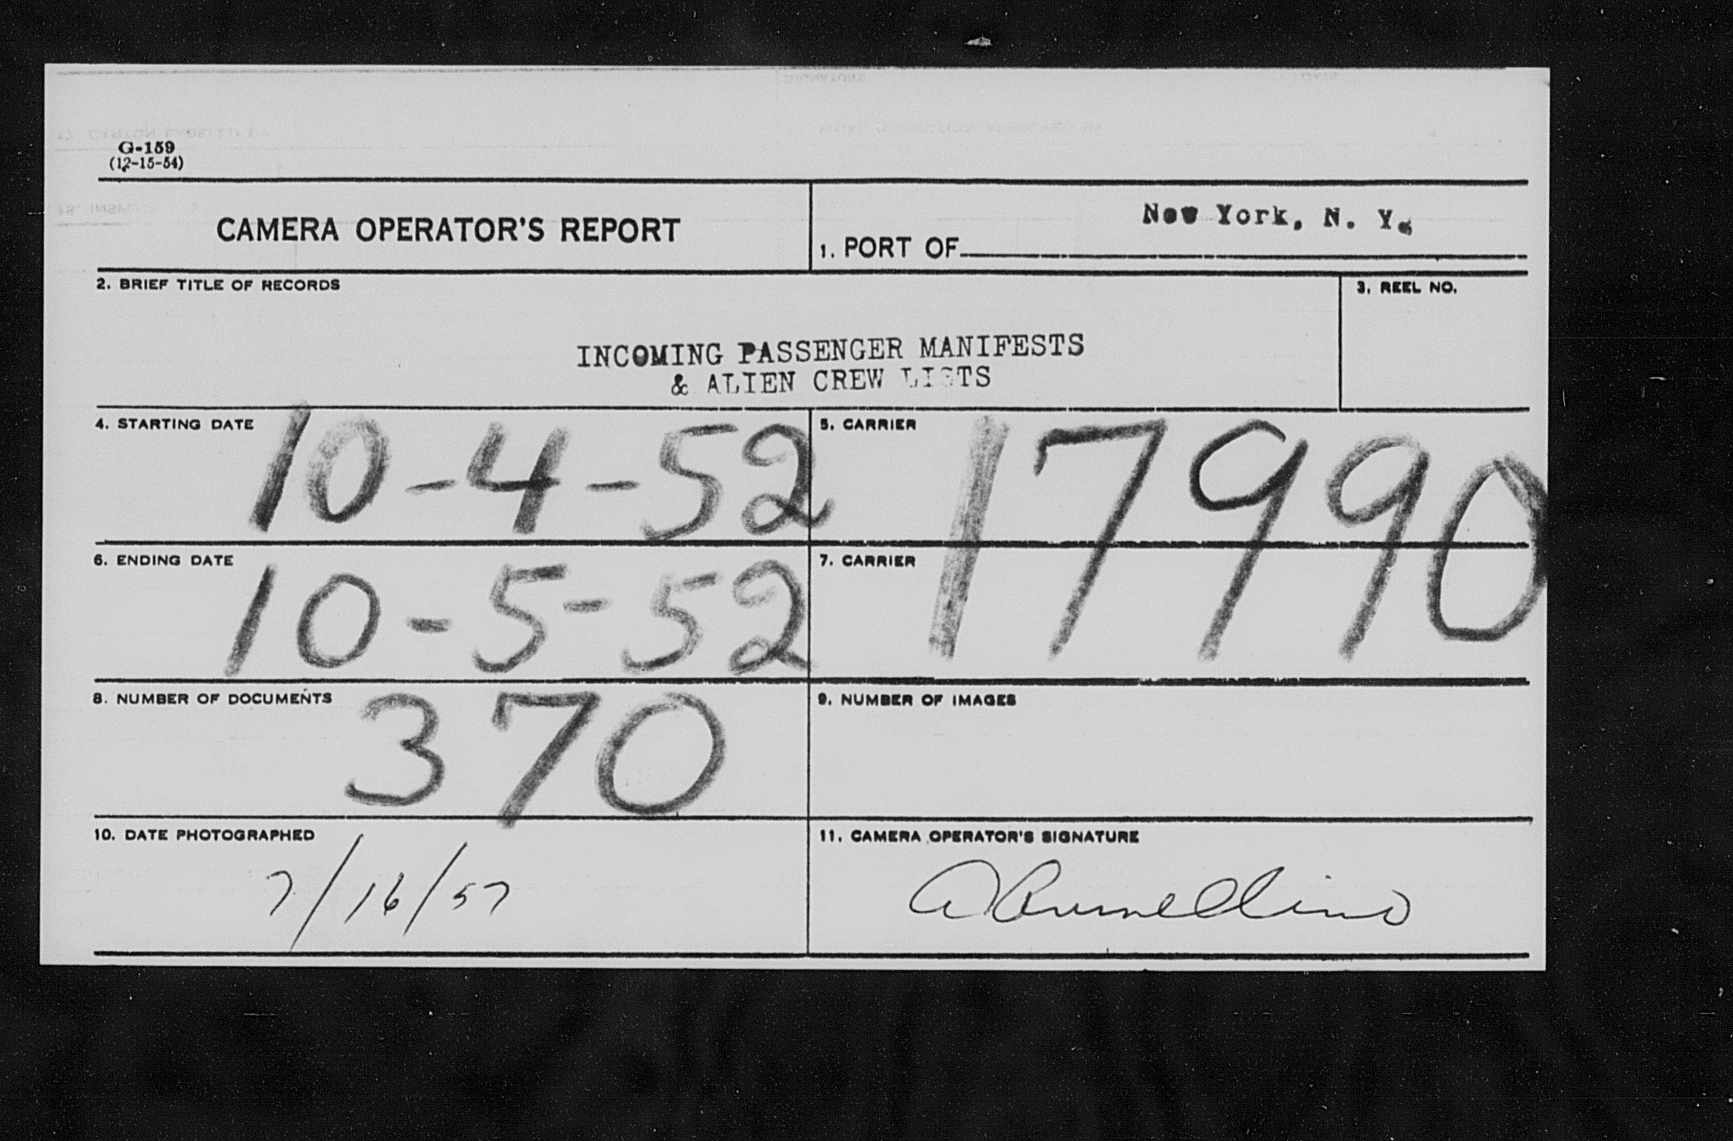 G-159
(12-15-54)
CAMERA OPERATOR'S REPORT
1. PORT OF New York, N. Y.
2. BRIEF TITLE OF RECORDS
3. REEL NO.
INCOMING PASSENGER MANIFESTS
& ALIEN CREW LISTS
4. STARTING DATE 10-4-52
5. CARRIER 17990
6. ENDING DATE 10-5-52
7. CARRIER
8. NUMBER OF DOCUMENTS 370
9. NUMBER OF IMAGES
10. DATE PHOTOGRAPHED
7/16/57
11. CAMERA OPERATOR'S SIGNATURE